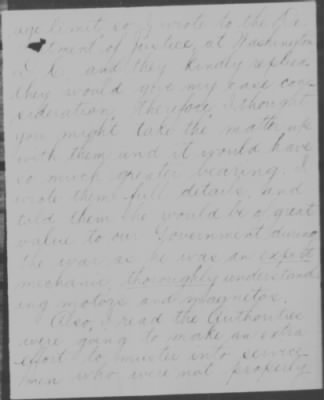 age limit, so I wrote to the De
tment of Justice, at Washington
D. C. and they kindly replied
they would give my case con-
sideration, therefore, I thought
you might take the matter up
with them and it would have
so much greater bearing. I
wrote them full details, and
told them he would be of great
value to our Government during
the war, as he was an expert
mechanic, thoroughly understand
ing motors and magnetos.
Also, I read the Authorities
were going to make an extra
effort to muster into service
men who were not properly